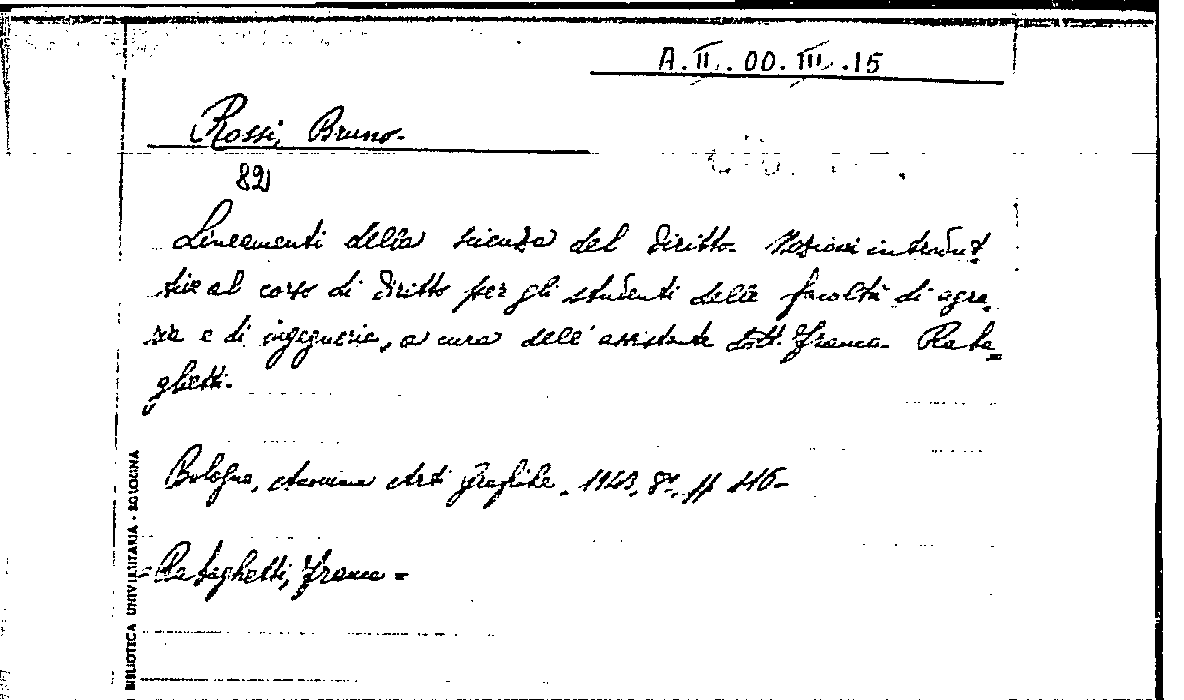 A.II.00.III.15
Rossi, Bruno.
82)
Lineamenti della scienza del diritto. Nozioni introdut
tive al corso di diritto per gli studenti delle facoltà di agra
ria e di ingegneria, a cura dell'assistente Dott. Franca Raba=
ghetti.
Bologna, Anonima Arti Grafiche, 1943, 8°, pp 116.
=Rabaghetti, Franca=
BIBLIOTECA UNIVERSITARIA - BOLOGNA